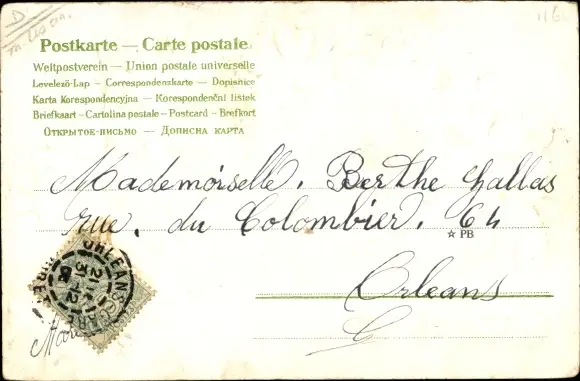 D
1160
Postkarte — Carte postale
Weltpostverein — Union postale universelle
Levelező-Lap — Correspondenzkarte — Dopisnice
Karta Korespondencyjna — Korespondenční lístek
Briefkaart — Cartolina postale — Postcard — Brefkort
Открытое-письмо — Дописна карта
Mademoiselle. Berthe Hallas
rue. du Colombier. 64
☆ PB
Orleans
ORLEANS GARE
21
31 12